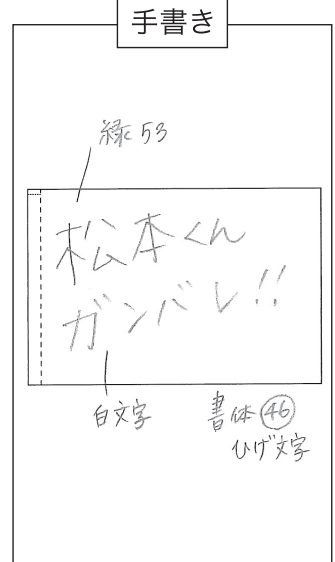 手書き
緑 53
松本くん
ガンバレ!!
白文字
書体 ㊻
ひげ文字